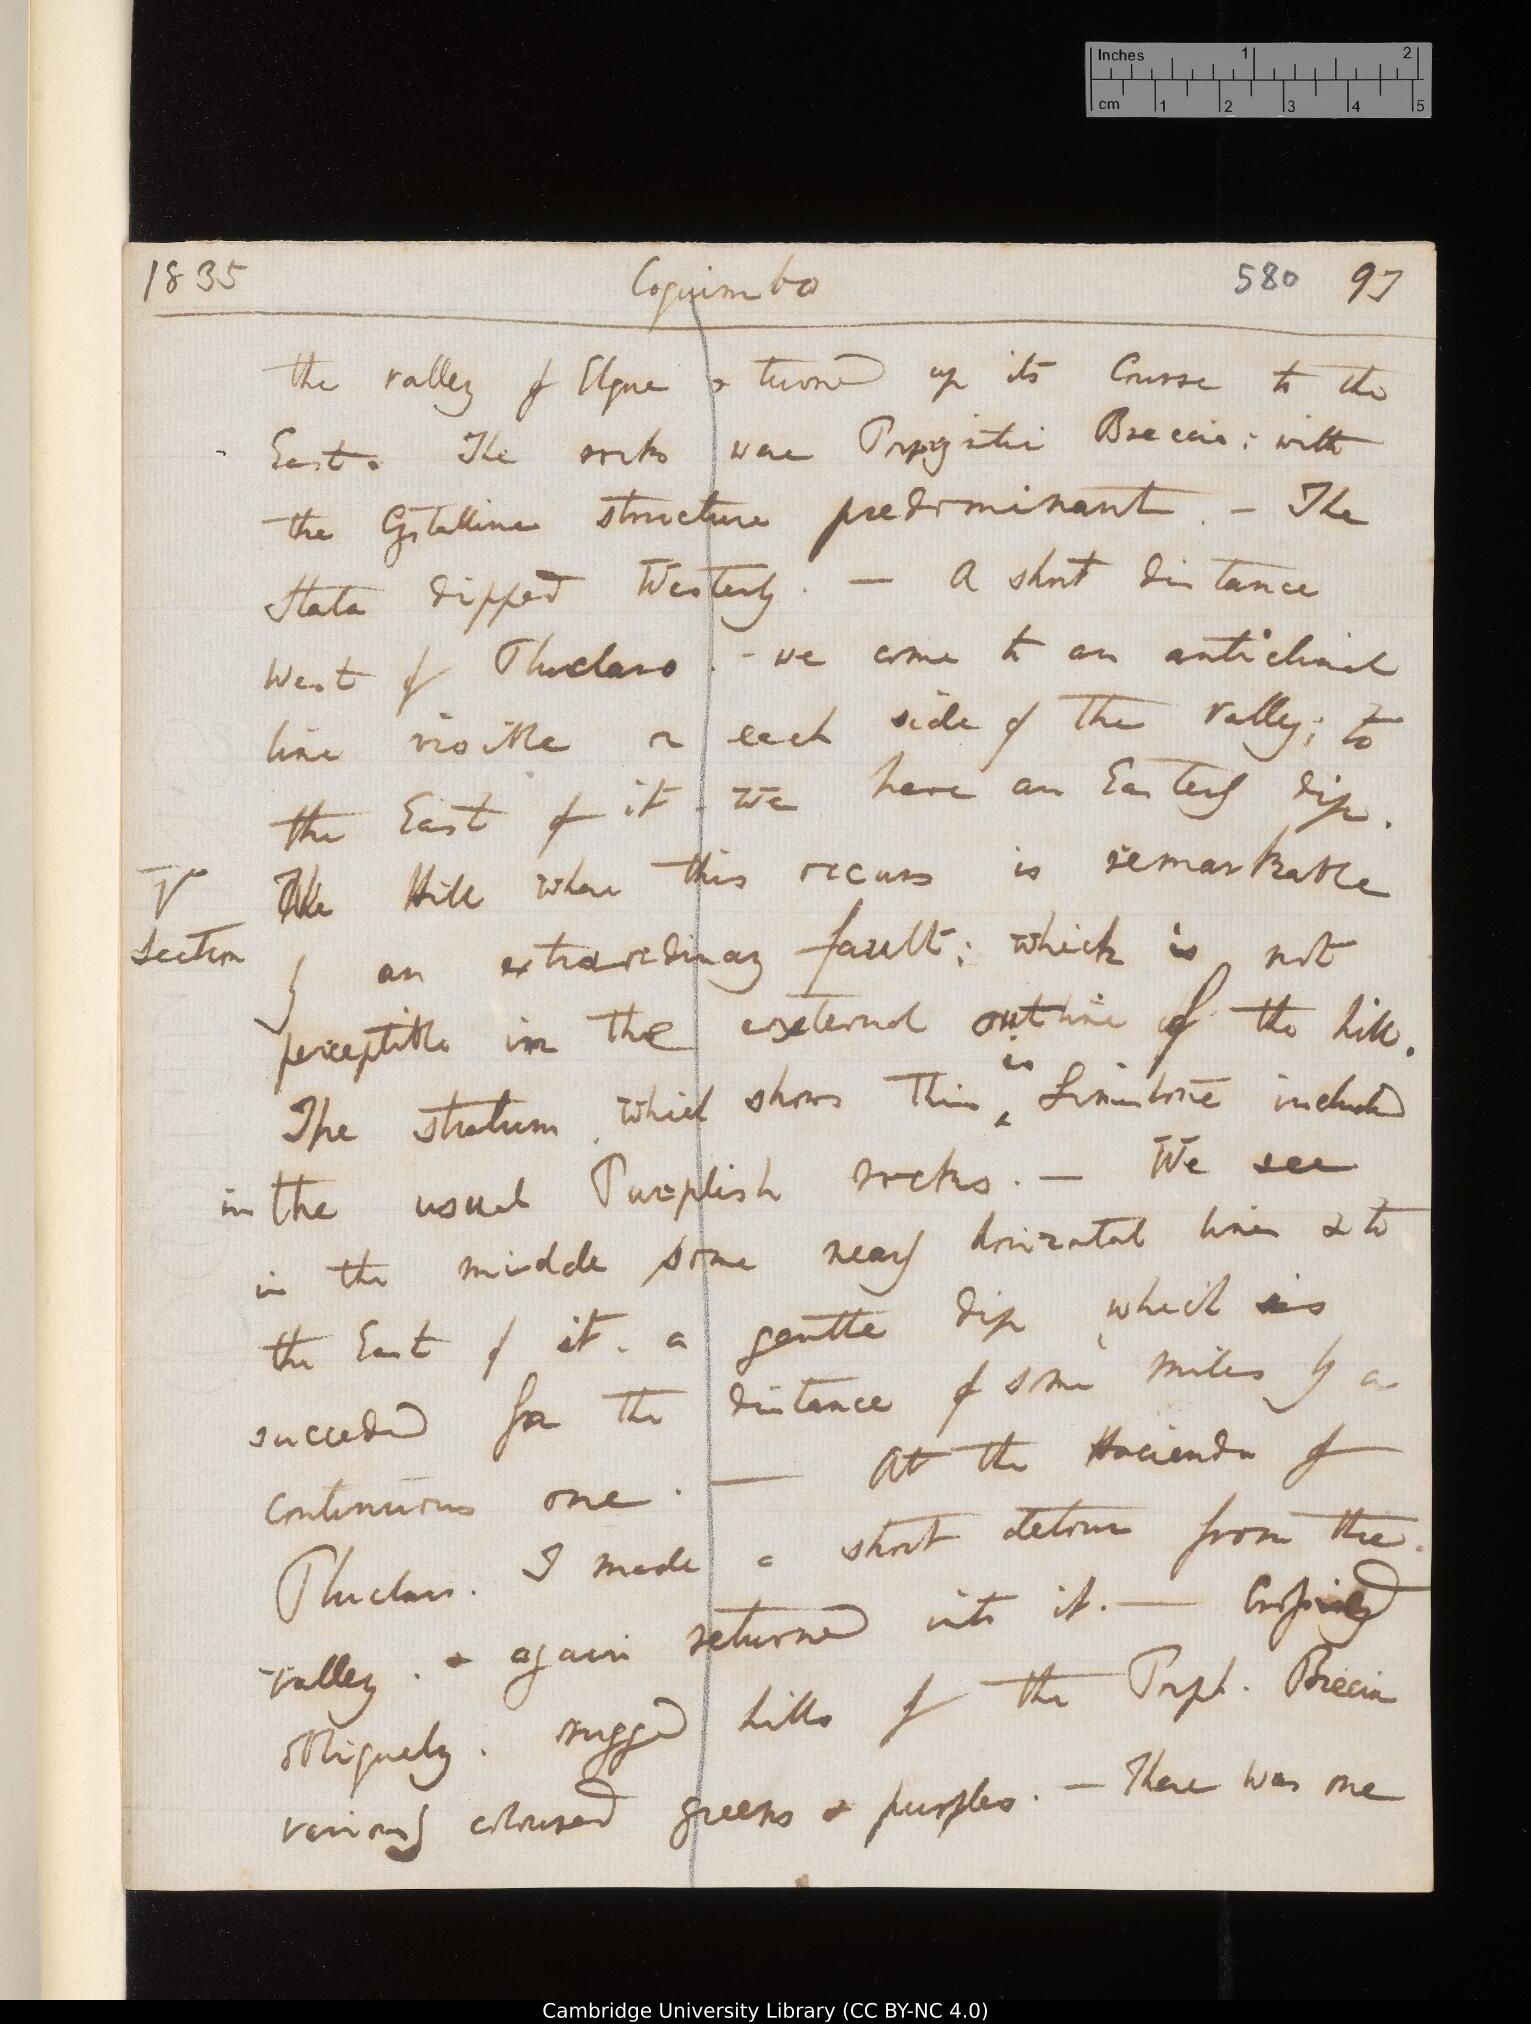 Inches 1 2
cm 1 2 3 4 5
1835 Coquimbo 580 97
the valley of Elque & turned up its Course to the
East. The rocks were Breccia: with
the Crystalline structure predominant. — The
strata dipped Westerly. — A short distance
West of Pluclaro. - we come to an anticlinal
line visible on each side of the valley; to
the East of it. we have an Easterly dip.
The Hill where this occurs is remarkable
V
Section
by an extraordinary fault; which is not
perceptible in the external outline of the hill.
is
The stratum, which shows this ^ Limestone included
in the usual Purplish rocks. — We see
in the middle some nearly horizontal lines & to
the East of it. a gentle dip, which is
succeeded for the distance of some miles by a
continuous one. — At the Hacienda of
Pluclaro. I made a short detour from the
valley. & again returned into it. —
obliquely. rugged hills of the Porph. Breccia
variously coloured greens & purples. — There was one
Cambridge University Library (CC BY-NC 4.0)